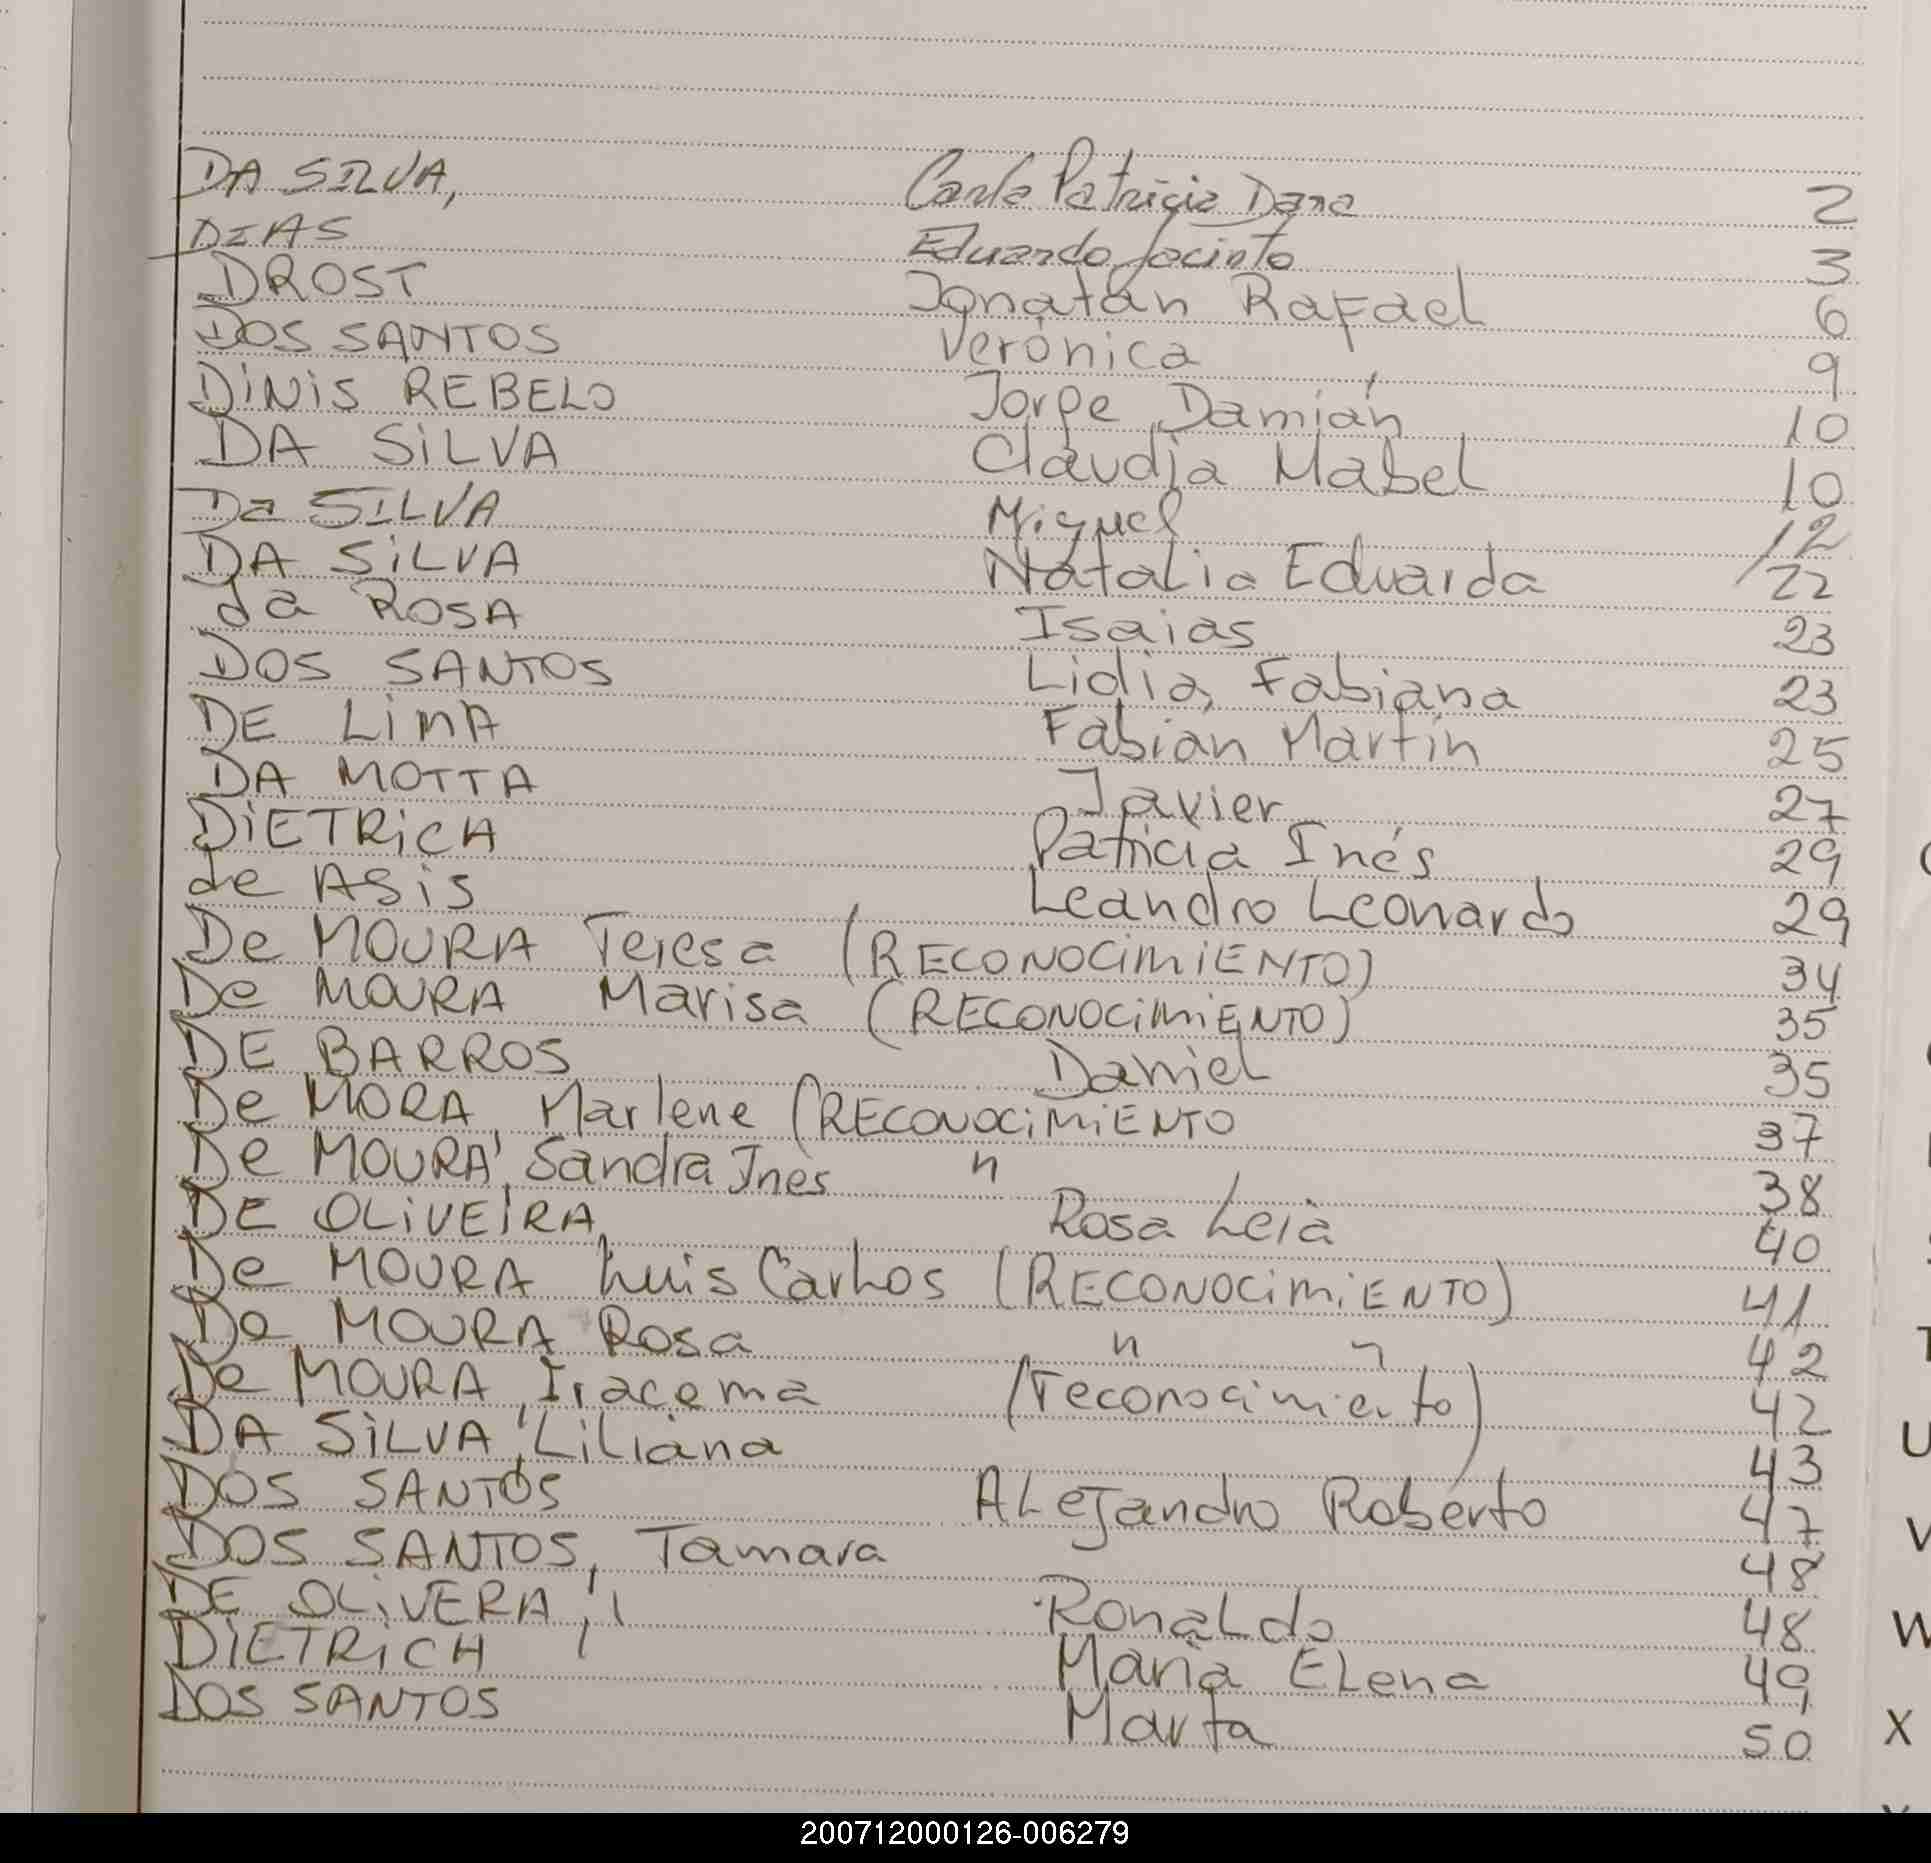 DA SILVA, Carla Patricia Dana 2
DIAS Eduardo Jacinto 3
DROST Jonatan Rafael 6
DOS SANTOS Verónica 9
DiNiS REBELO Jorge Damián 10
DA SiLVA Claudia Mabel 10
Da SILVA Miguel 12
DA SiLVA Natalia Eduarda 22
da ROSA Isaias 23
DOS SANTOS Lidia, Fabiana 23
DE LiMA Fabián Martín 25
DA MOTTA Javier 27
DiETRiCH Patricia Inés 29
de ASiS Leandro Leonardo 29
De MOURA Teresa (RECONOCiMiENTO) 34
De MOURA Marisa (RECONOCiMiENTO) 35
DE BARROS Daniel 35
De MORA, Marlene (RECONOCiMiENTO 37
De MOURA, Sandra Inés " 38
DE OLiVEiRA, Rosa Leia 40
De MOURA Luis Carlos (RECONOCiMiENTO) 41
De MOURA Rosa " " 42
De MOURA, Iracema (reconocimiento) 42
DA SiLVA, Liliana 43
DOS SANTOS ALeJandro Roberto 47
DOS SANTOS, Tamara 48
DE OLiVERA, Ronaldo 48
DiETRiCH María ELena 49
DOS SANTOS Marta 50
U
V
W
X
200712000126-006279